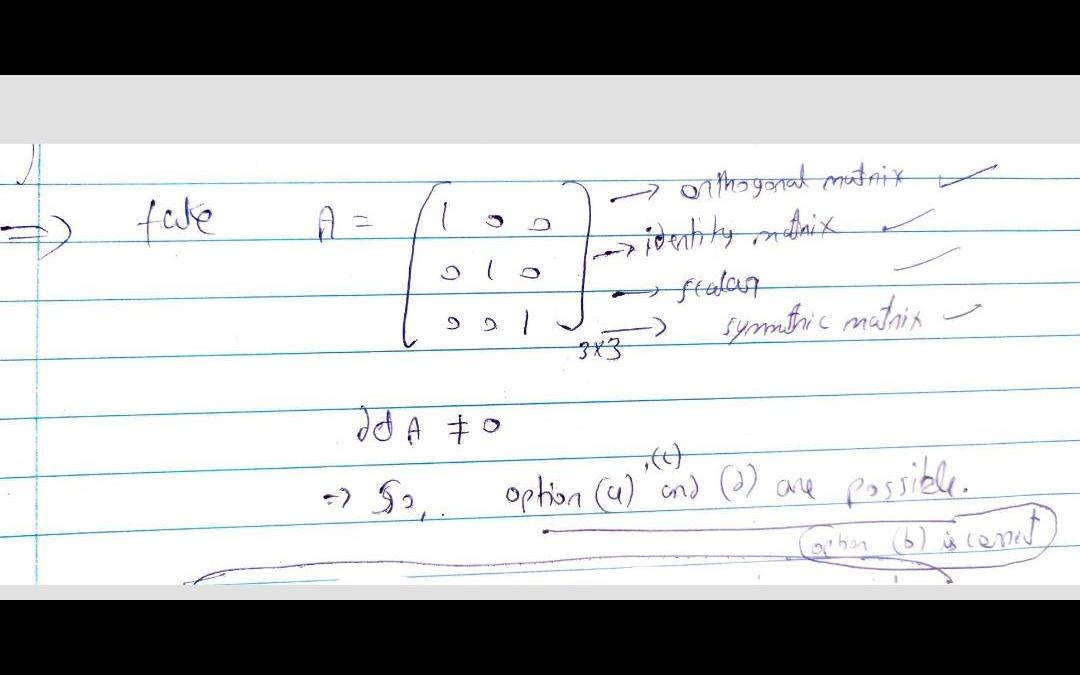 => take A = [1 0 0 → orthogonal matrix ✓
→ identity matrix ✓
0 1 0
→ scalar ✓
0 0 1] 3x3 → symmthic matrix ✓
det A ≠ 0
=> So, option (a) ,(c) and (d) are possible.
option (b) is correct